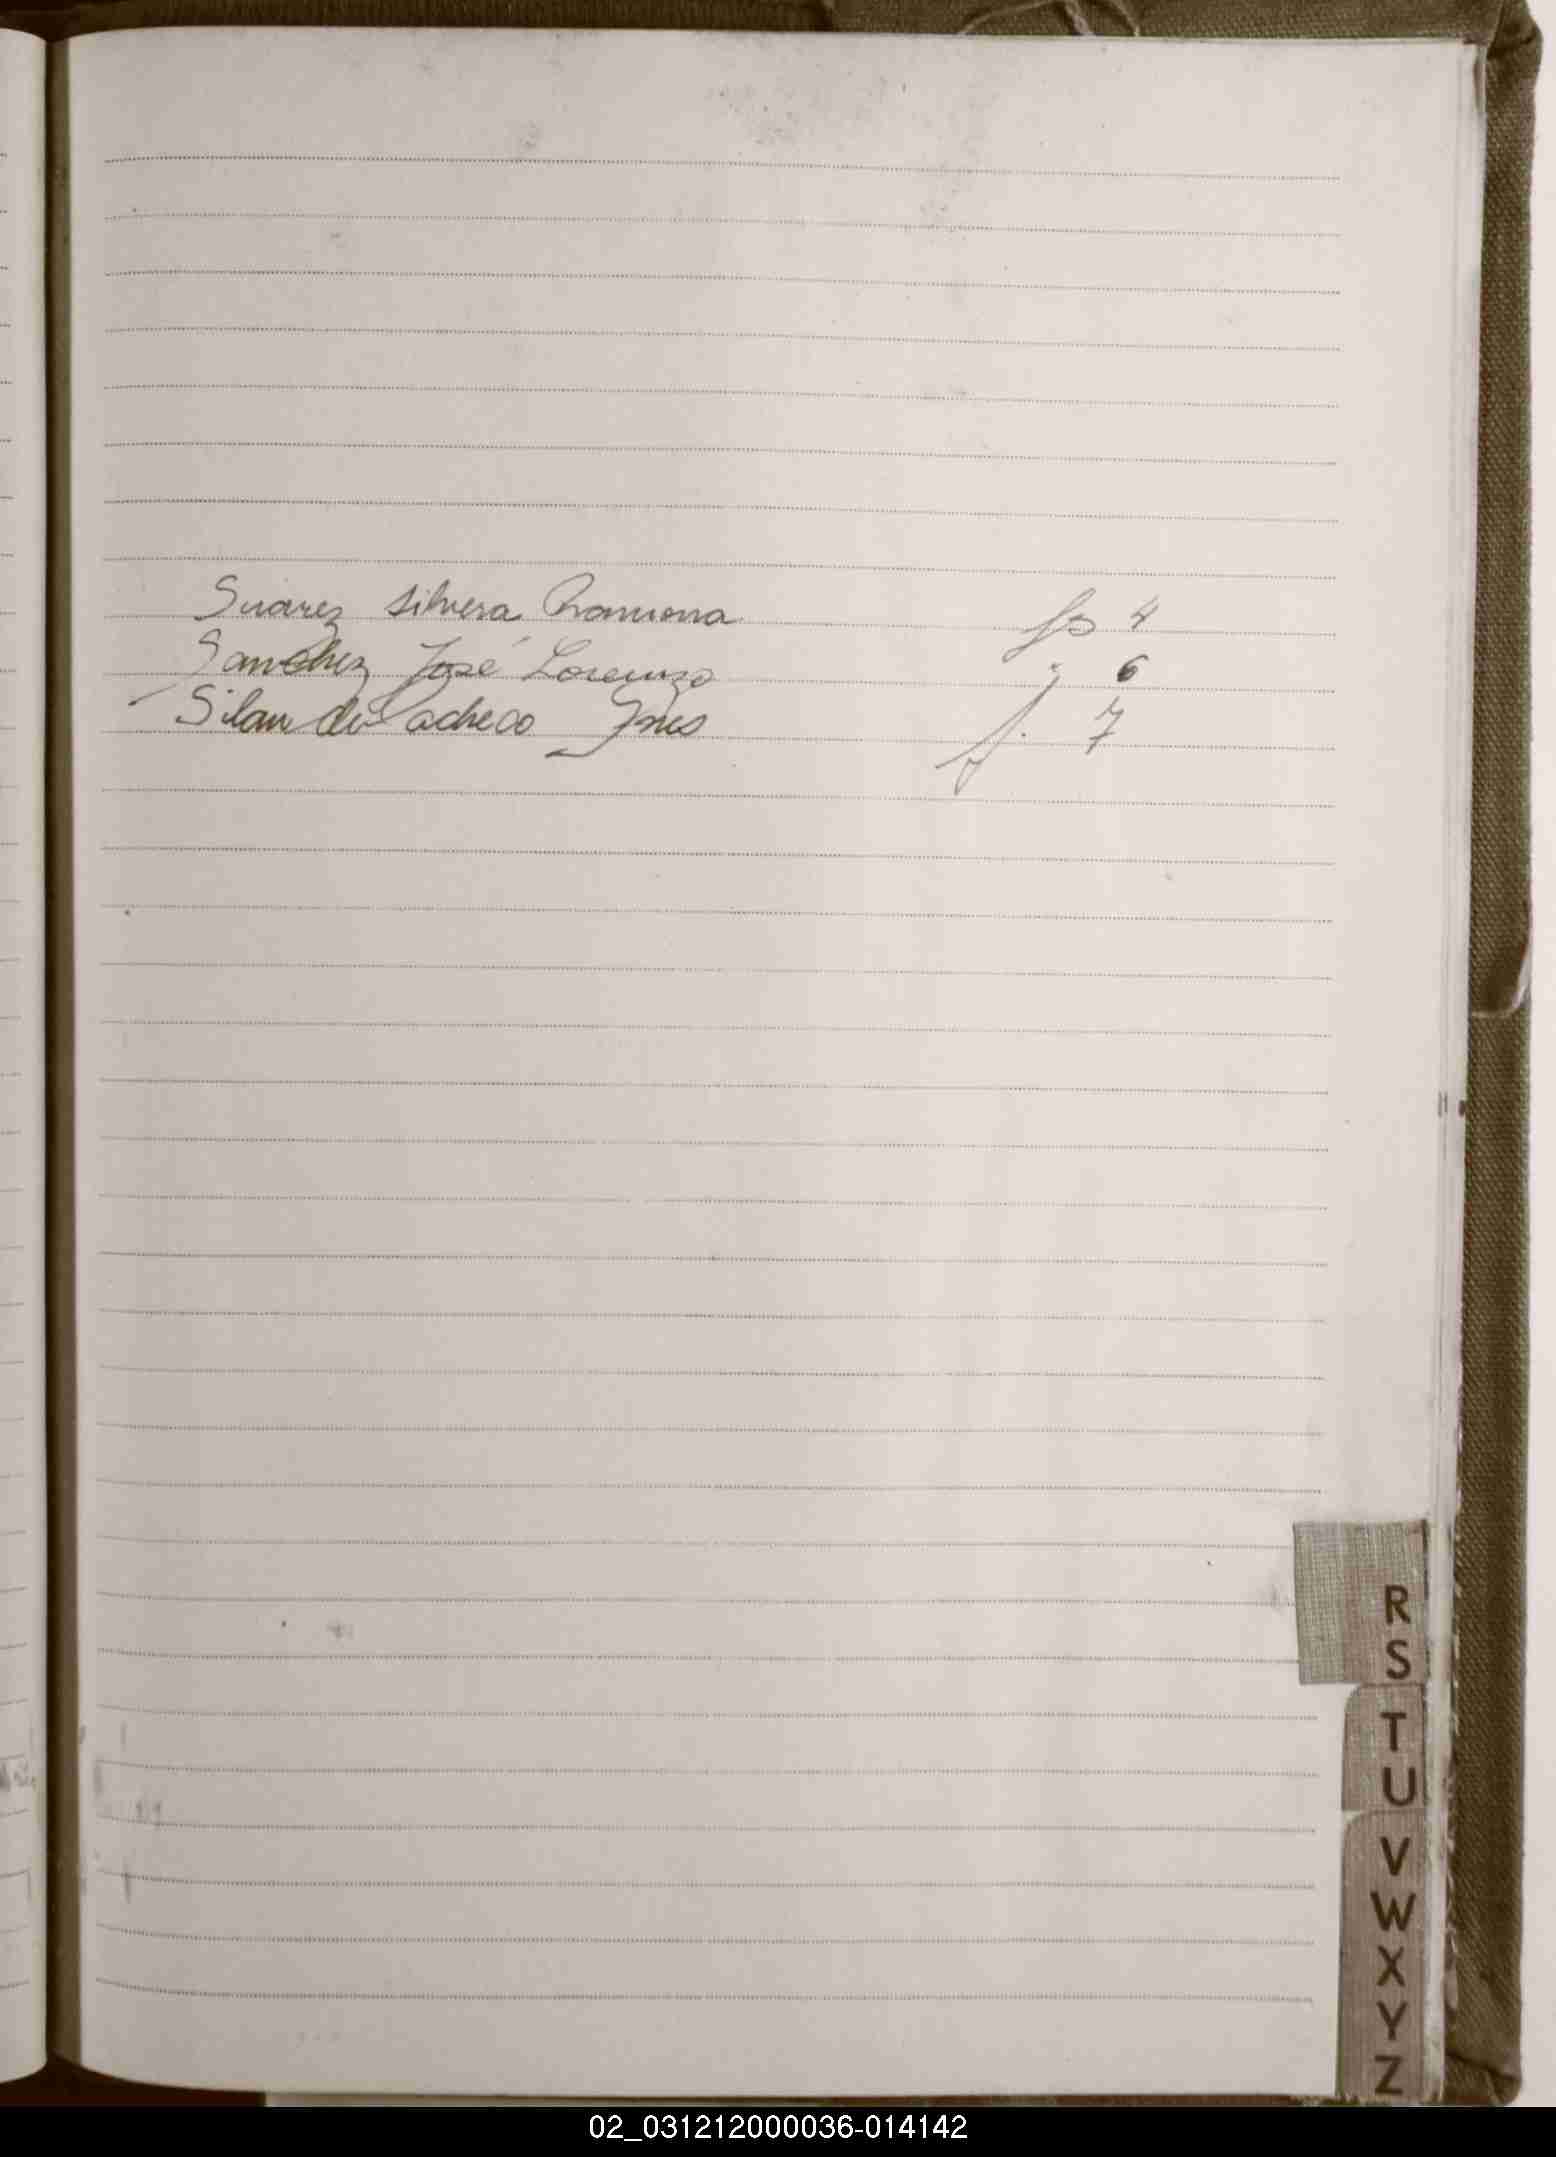 Suarez Silvera Ramona fs 4
Sanchez José Lorenzo j 6
Silan de Pacheco Ynes f. 7
R
S
T
U
V
W
X
Y
Z
02_031212000036-014142